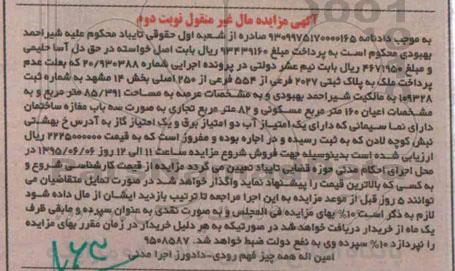 آگهی مزایده مال غیر منقول نوبت دوم
به موجب دادنامه ۹۳۰۹۹۷۵۱۷۰۰۰۰۱۶۵ صادره از شعبه اول حقوقی تایباد محکوم علیه شیراحمد
بهبودی محکوم است به پرداخت مبلغ ۹۳۴۳۹۱۶۰ ریال بابت اصل خواسته در حق دل آسا حلیمی
و مبلغ ۴۶۷۱۹۵۰ ریال بابت نیم عشر دولتی در پرونده اجرایی شماره ۲۰/۹۳۰۳۸۸ که بعلت عدم
پرداخت ملک به پلاک ثبتی ۲۰۲۷ فرعی از ۵۵۴ فرعی از ۲۵۰ اصلی بخش ۱۴ مشهد به شماره ثبت
۱۰۹۳۲۸ به مالکیت شیراحمد بهبودی و به مشخصات عرصه به مساحت ۸۵/۳۹۱ متر مربع و به
مشخصات اعیان ۱۶۰ متر مربع مسکونی و ۸۲ متر مربع تجاری به صورت سه باب مغازه ساختمان
دارای نما سیمانی که دارای یک امتیاز آب دو امتیاز برق و یک امتیاز گاز به آدرس خ بهشتی
نبش کوچه لادن که به ثبت رسیده و در اجاره بوده و مفروز است که به قیمت ۲۲۲۵۰۰۰۰۰۰ ریال
ارزیابی شده است بدینوسیله جهت فروش شروع مزایده ساعت ۱۱ الی ۱۲ روز ۱۳۹۵/۰۶/۰۶ در
محل اجرای احکام مدنی حوزه قضایی تایباد تعیین می گردد مزایده از قیمت کارشناسی شروع و
به کسی که بالاترین قیمت را پیشنهاد نماید واگذار خواهد شد در صورت تمایل متقاضیان می
توانند ۵ روز قبل از موعد مزایده به این اجرا مراجعه تا ترتیب بازدید ایشان از مال داده شود
لازم به ذکر است ۱۰% بهای مزایده فی المجلس و به صورت نقدی به عنوان سپرده و مابقی ظرف
یک ماه از خریدار دریافت خواهد شد در صورتیکه به هر دلیل خریدار در زمان مقرر بهای مزایده
را نپردازد ۱۰% سپرده وی به نفع دولت ضبط خواهد شد. ۹۵۰۸۵۸۷
امین اله همه چیز فهم رودی-دادورز اجرا مدنی